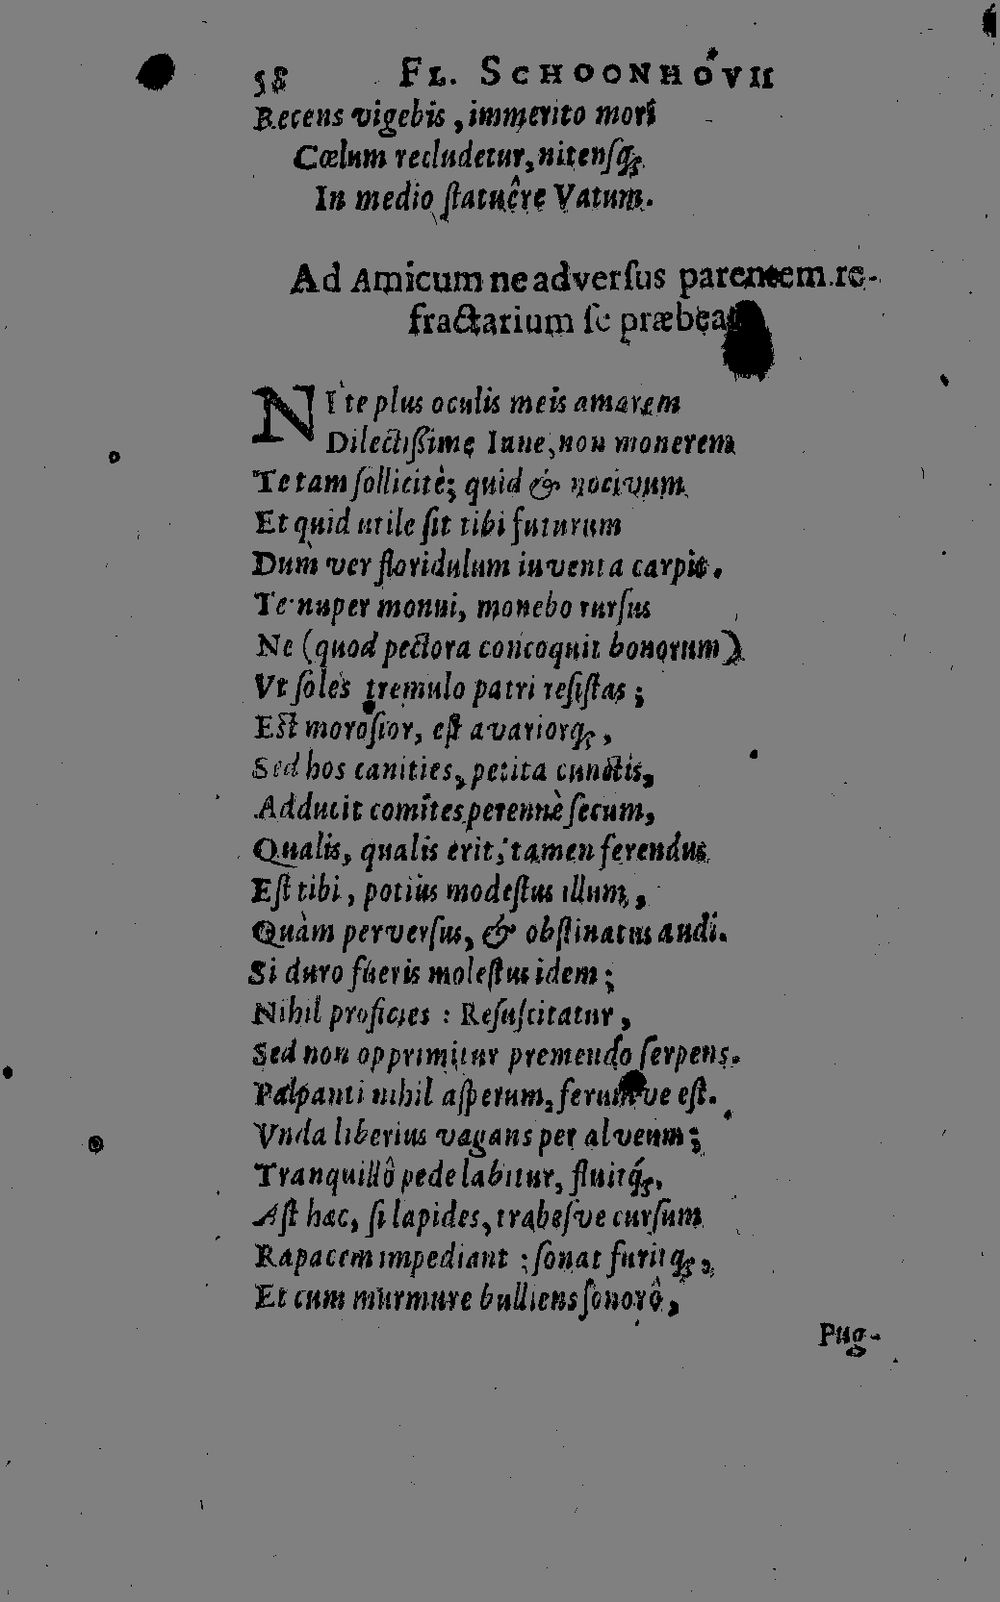 58 FL. SCHOONHOVII
Recens vigebis, immerito mori
Cœlum recludetur, nitensq;
In medio ſtatuêre Vatum.
Ad Amicum ne adverſus parentem re-
fractarium ſe præbeat
NI te plus oculis meis amarem
Dilectiſſime Iune, non monerem
Te tam ſollicitè; quid & nocivum
Et quid utile ſit tibi futurum
Dum ver floridulum iuventa carpit.
Te nuper monui, monebo rurſus
Ne (quod pectora concoquit bonorum)
Vt ſoles tremulo patri reſiſtas;
Eſt moroſior, eſt avariorq;,
Sed hos canities, petita cunctis,
Adducit comites perennè ſecum,
Qualis, qualis erit, tamen ferendus
Eſt tibi, potiùs modeſtus illum,
Quàm perverſus, & obſtinatus audi.
Si duro fueris moleſtus idem;
Nihil proficies: Reſuſcitatur,
Sed non opprimitur premendo ſerpens.
Palpanti nihil aſperum, ferumve eſt.
Vnda liberius vagans per alveum;
Tranquillô pede labitur, fluitq́;.
Aſt hæc, ſi lapides, trabeſve curſum
Rapacem impediant: ſonat furitq;,
Et cum murmure bulliens ſonorô,
Pug-